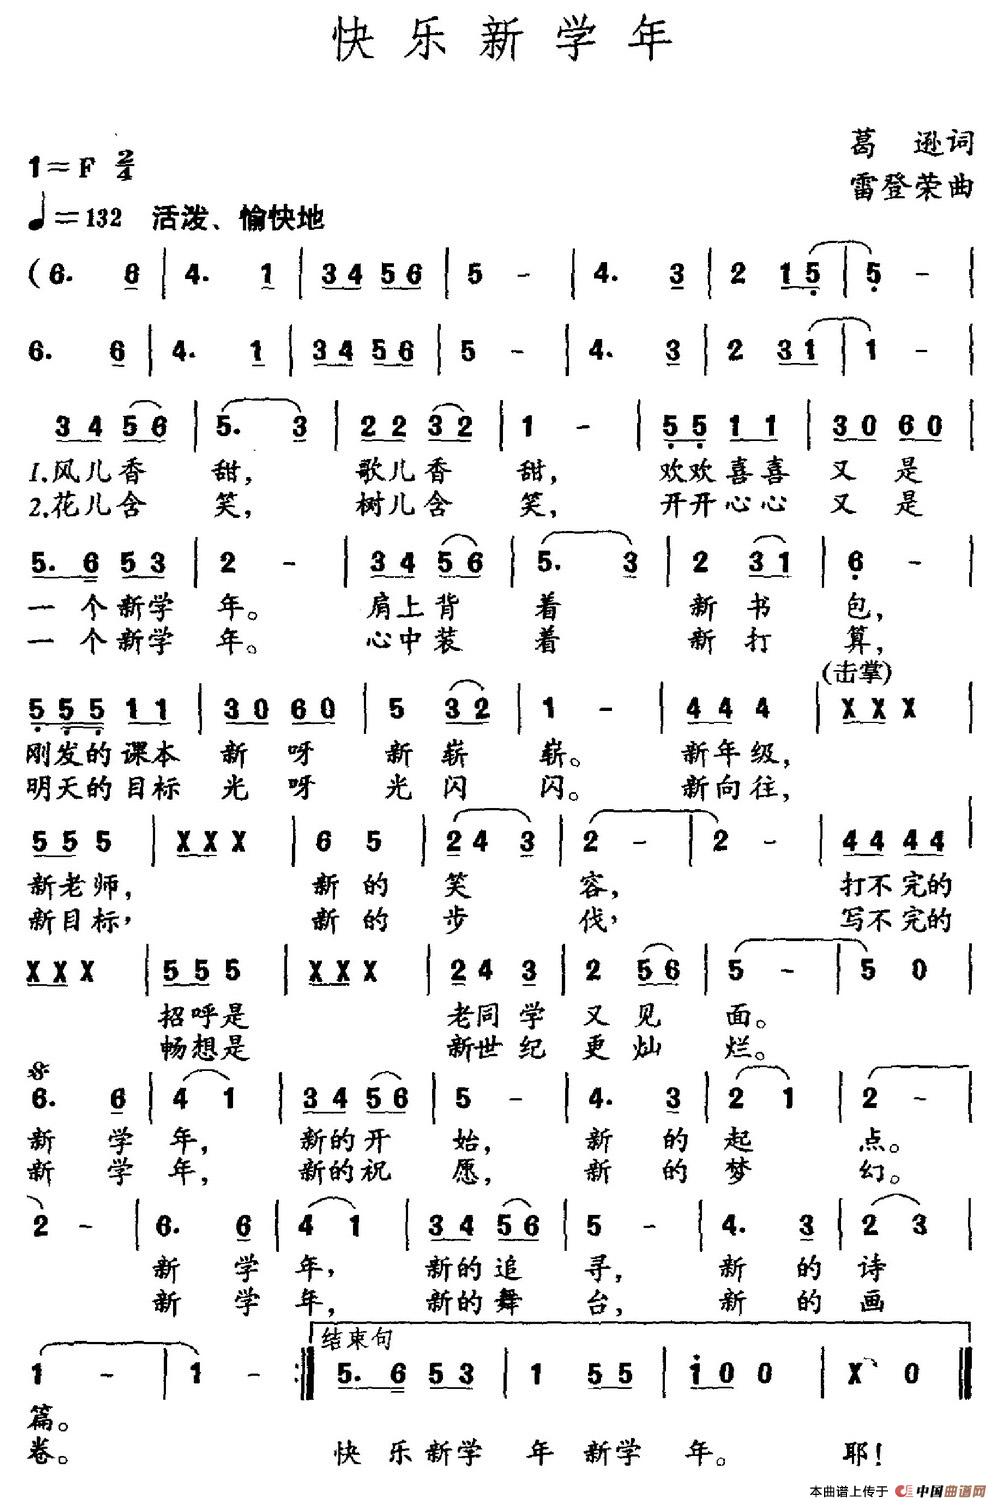 快乐新学年
葛逊词
1=F 2/4
雷登荣曲
♩=132 活泼、愉快地
(6. 6 | 4. 1 | 3 4 5 6 | 5 - | 4. 3 | 2 1 5 | 5 - |
6. 6 | 4. 1 | 3 4 5 6 | 5 - | 4. 3 | 2 3 1 | 1 - |
3 4 5 6 | 5. 3 | 2 2 3 2 | 1 - | 5 5 1 1 | 3 0 6 0 |
1.风儿香 甜, 歌儿香 甜, 欢欢喜喜 又 是
2.花儿含 笑, 树儿含 笑, 开开心心 又 是
5. 6 5 3 | 2 - | 3 4 5 6 | 5. 3 | 2 3 1 | 6 - |
一 个新学 年。 肩上背 着 新 书 包,
一 个新学 年。 心中装 着 新 打 算,
(击掌)
5 5 5 1 1 | 3 0 6 0 | 5 3 2 | 1 - | 4 4 4 | X X X |
刚发的课本 新 呀 新 崭 崭。 新年级,
明天的目标 光 呀 光 闪 闪。 新向往,
5 5 5 | X X X | 6 5 | 2 4 3 | 2 - | 2 - | 4 4 4 4 |
新老师, 新 的 笑 容, 打不完的
新目标, 新 的 步 伐, 写不完的
X X X | 5 5 5 | X X X | 2 4 3 | 2 5 6 | 5 - | 5 0 |
招呼是 老同学 又 见 面。
畅想是 新世纪 更 灿 烂。
6. 6 | 4 1 | 3 4 5 6 | 5 - | 4. 3 | 2 1 | 2 - |
新 学 年, 新的开 始, 新 的 起 点。
新 学 年, 新的祝 愿, 新 的 梦 幻。
2 - | 6. 6 | 4 1 | 3 4 5 6 | 5 - | 4. 3 | 2 3 |
新 学 年, 新的追 寻, 新 的 诗
新 学 年, 新的舞 台, 新 的 画
结束句
1 - | 1 - :| 5. 6 5 3 | 1 5 5 | 1 0 0 | X 0 ||
篇。
卷。 快 乐新学 年 新学 年。 耶!
本曲谱上传于 中国曲谱网